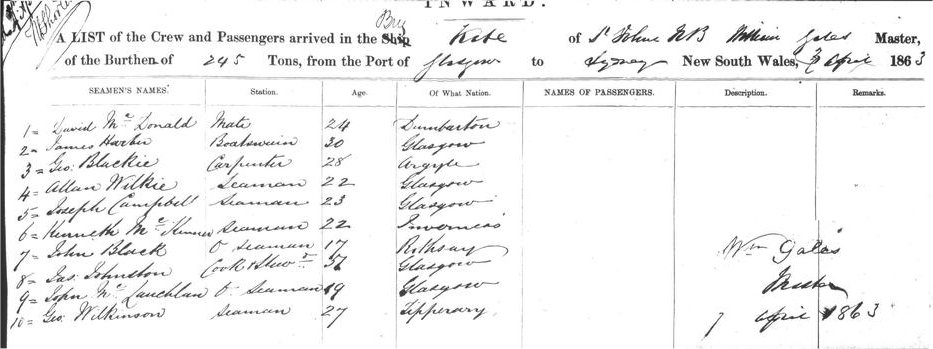 INWARD.
A LIST of the Crew and Passengers arrived in the Ship Brig Kate of St Johns NB William Gales Master,
of the Burthen of 245 Tons, from the Port of Glasgow to Sydney New South Wales, 7 April 1863
SEAMEN'S NAMES. Station. Age. Of What Nation. NAMES OF PASSENGERS. Description. Remarks.
1= David Mc Donald Mate 24 Dumbarton
2= James Boatswain 30 Glasgow
3= Geo: Blackie Carpenter 28 Argyle
4= Allan Wilkie Seaman 22 Glasgow
5= Joseph Campbell Seaman 23 Glasgow
6= Kenneth Mc Seaman 22 Inverness
7= John Black O Seaman 17 Rothsay
8= Jas: Johnston Cook & Stewd Glasgow
9= John Mc Lauchlan O Seaman 19 Glasgow
10= Geo: Wilkinson Seaman 27 Tipperary
Wm Gales
Master
7 April 1863